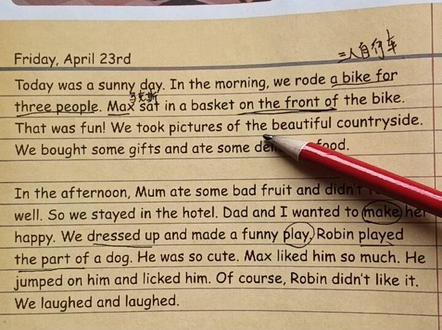 三人自行车
Friday, April 23rd
Today was a sunny day. In the morning, we rode a bike for
马克斯
three people. Max sat in a basket on the front of the bike.
That was fun! We took pictures of the beautiful countryside.
We bought some gifts and ate some food.
In the afternoon, Mum ate some bad fruit and didn't
well. So we stayed in the hotel. Dad and I wanted to make her
happy. We dressed up and made a funny play. Robin played
the part of a dog. He was so cute. Max liked him so much. He
jumped on him and licked him. Of course, Robin didn't like it.
We laughed and laughed.